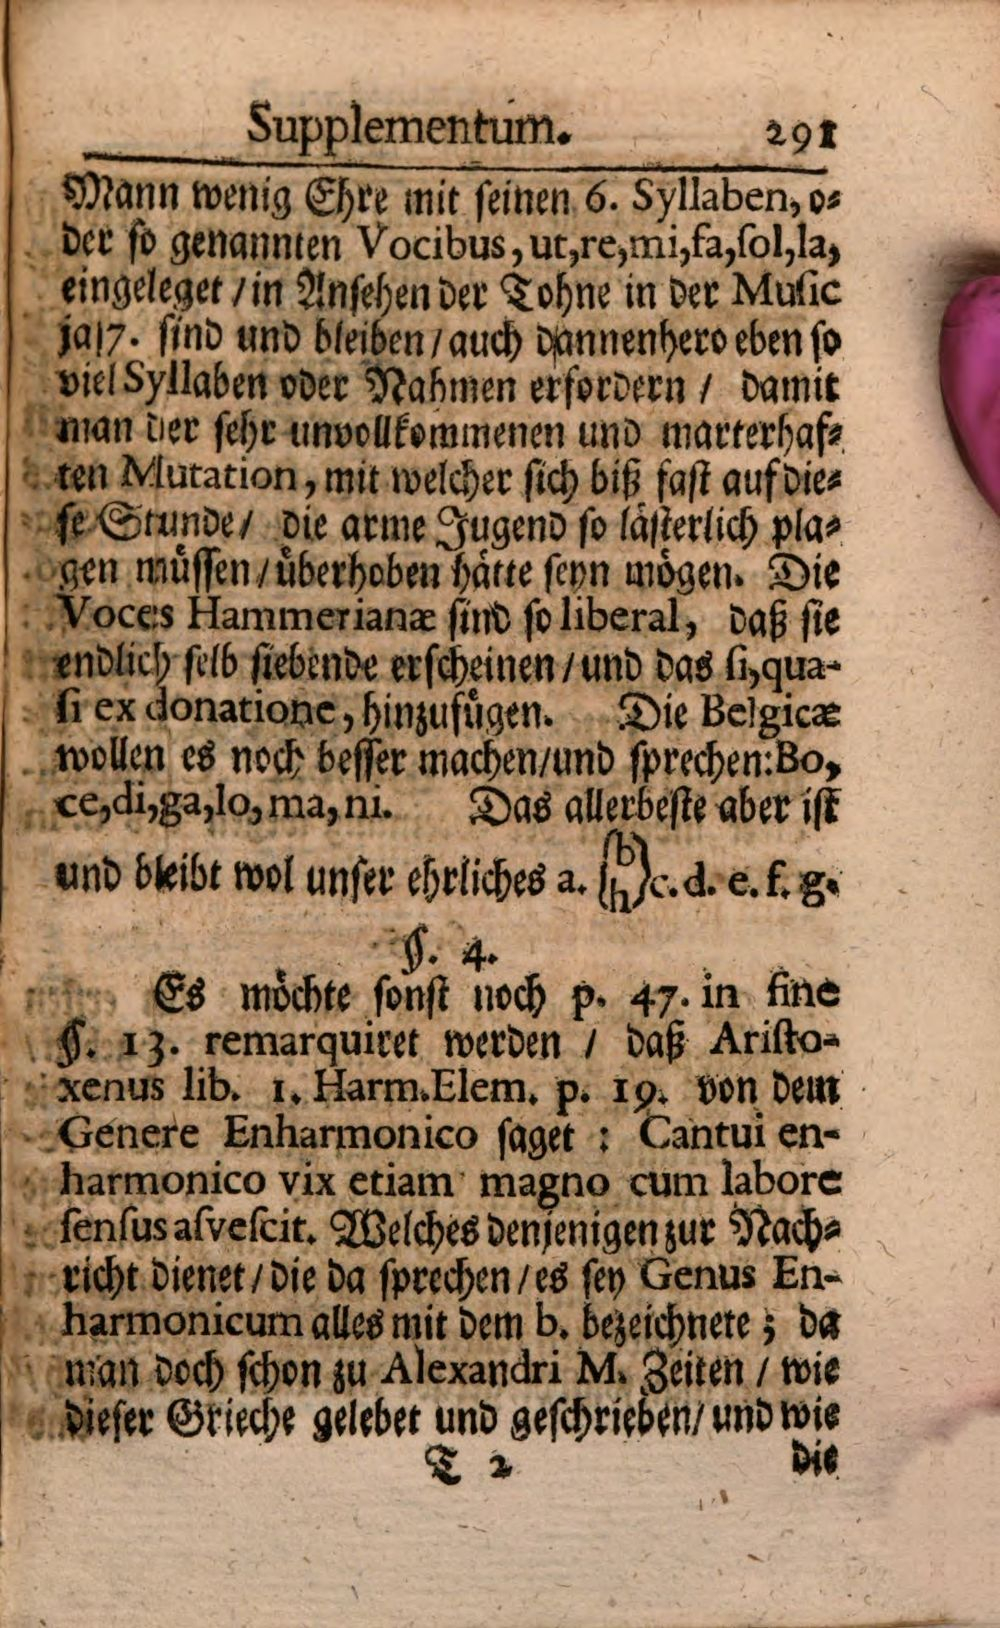 Supplementum. 291
Mann wenig Ehre mit seinen 6. Syllaben, o⸗
der so genannten Vocibus, ut, re, mi, fa, sol, la,
eingeleget / in Ansehen der Tohne in der Music
ja 7. sind und bleiben / auch dannenhero eben so
viel Syllaben oder Nahmen erfordern / damit
man der sehr unvollkommenen und marterhaf⸗
ten Mutation, mit welcher sich biß fast auf die⸗
se Stunde / die arme Jugend so lästerlich pla⸗
gen müssen / überhoben hätte seyn mögen. Die
Voces Hammerianæ sind so liberal, daß sie
endlich selb siebende erscheinen / und das si, qua-
si ex donatione, hinzufügen. Die Belgicæ
wollen es noch besser machen / und sprechen: Bo,
ce, di, ga, lo, ma, ni. Das allerbeste aber ist
und bleibt wol unser ehrliches a. (b/h) c. d. e. f. g.
§. 4.
Es möchte sonst noch p. 47. in fine
§. 13. remarquiret werden / daß Aristo-
xenus lib. 1. Harm. Elem. p. 19. von dem
Genere Enharmonico saget : Cantui en-
harmonico vix etiam magno cum labore
sensus asvescit. Welches denjenigen zur Nach⸗
richt dienet / die da sprechen / es sey Genus En-
harmonicum alles mit dem b. bezeichnete ; da
man doch schon zu Alexandri M. Zeiten / wie
dieser Grieche gelebet und geschrieben / und wie
T 2 die